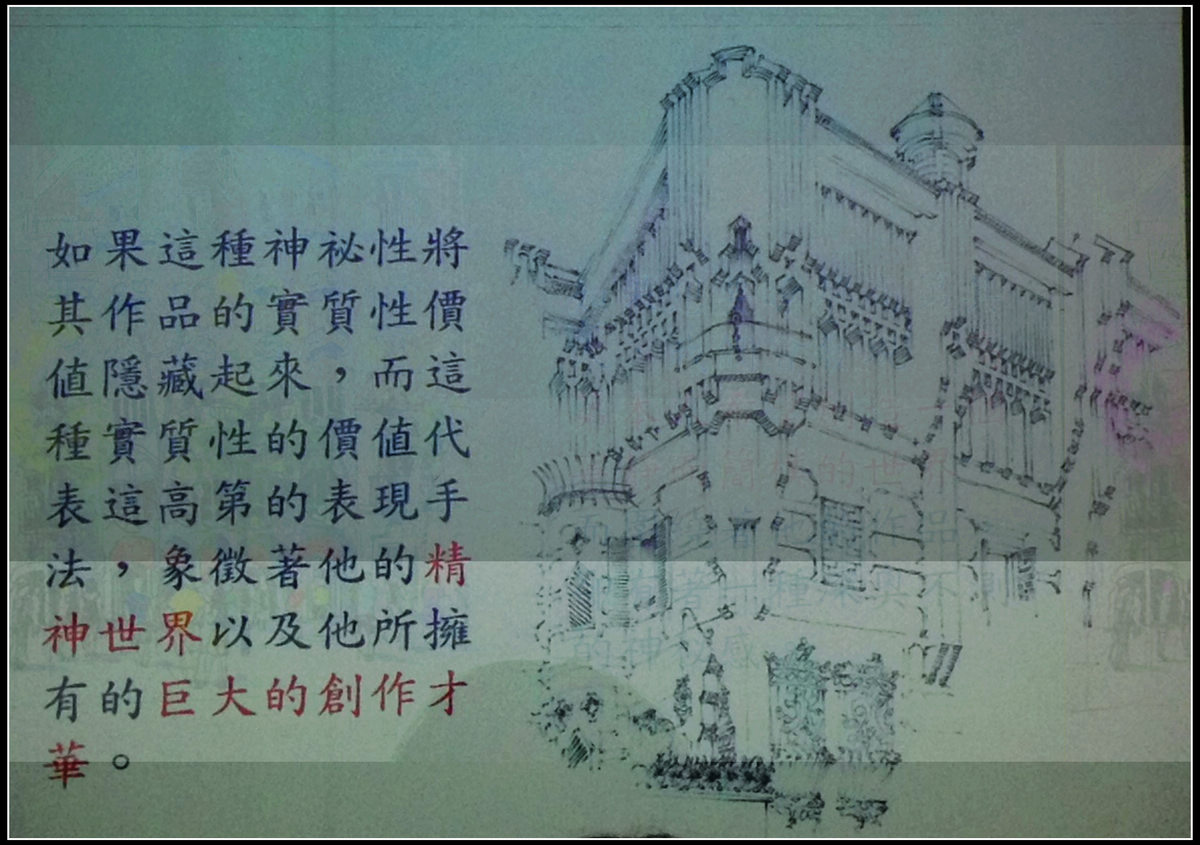 如果這種神祕性將
其作品的實質性價
值隱藏起來，而這
種實質性的價值代
表這高第的表現手
法，象徵著他的精
神世界以及他所擁
有的巨大的創作才
華。
的世界
作品
的神 感